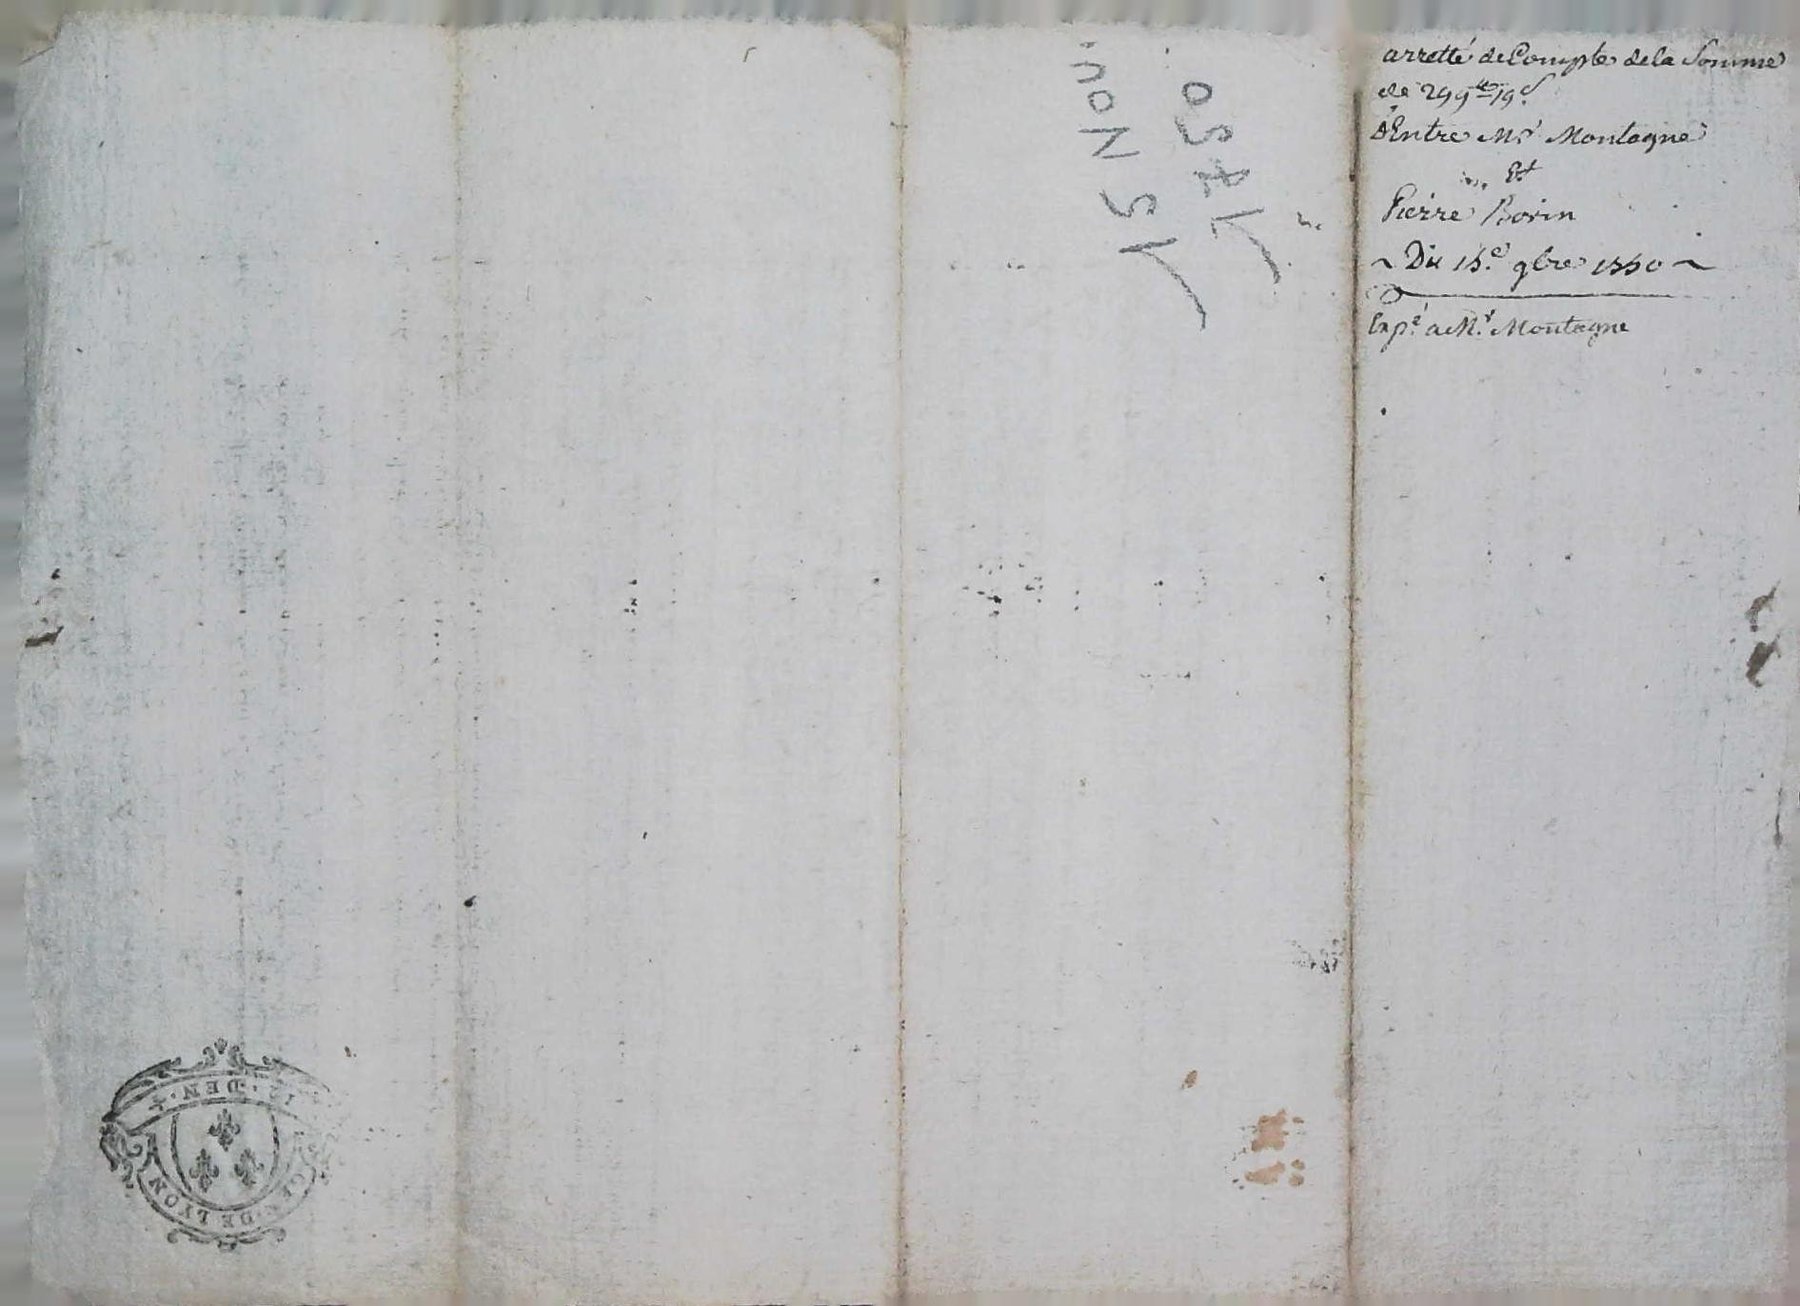 arretté de Compte de la Somme
de 299ᵗᵗ 19ˢ
D'Entre Mʳ Montagne
Et
Pierre Borin
~ Du 15.ᵉ 9bre 1750 ~
Expᵉ a Mʳ Montagne
15 Nov
1750
DEN
GEN. DE LYON